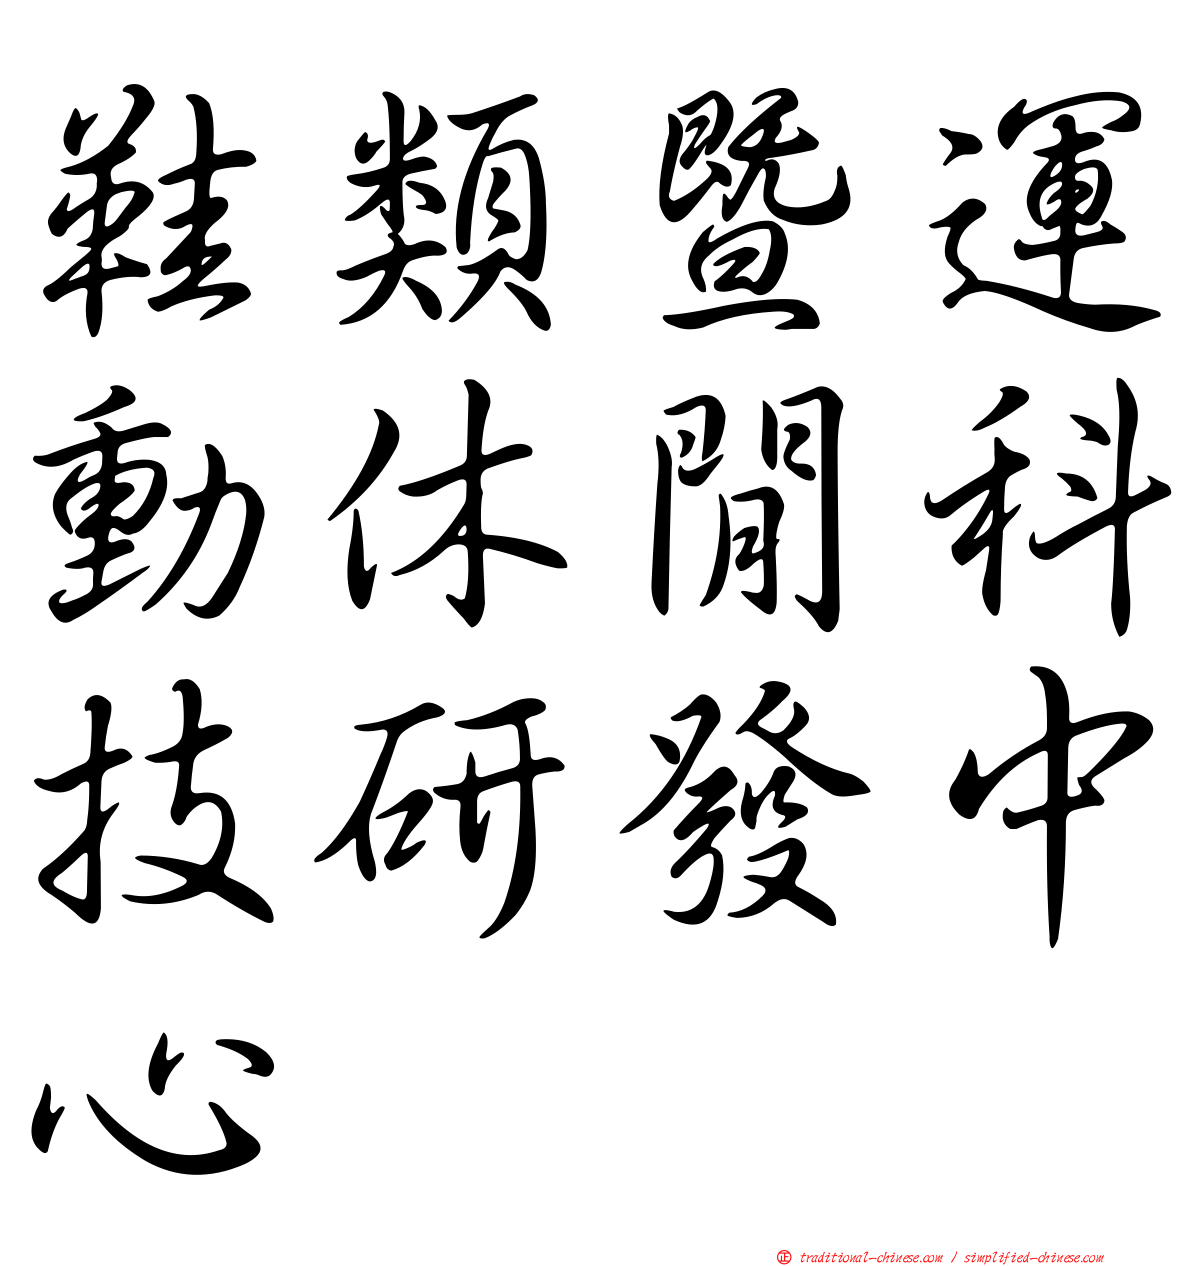 鞋類暨運
動休閒科
技研發中
心
㊣ traditional-chinese.com / simplified-chinese.com